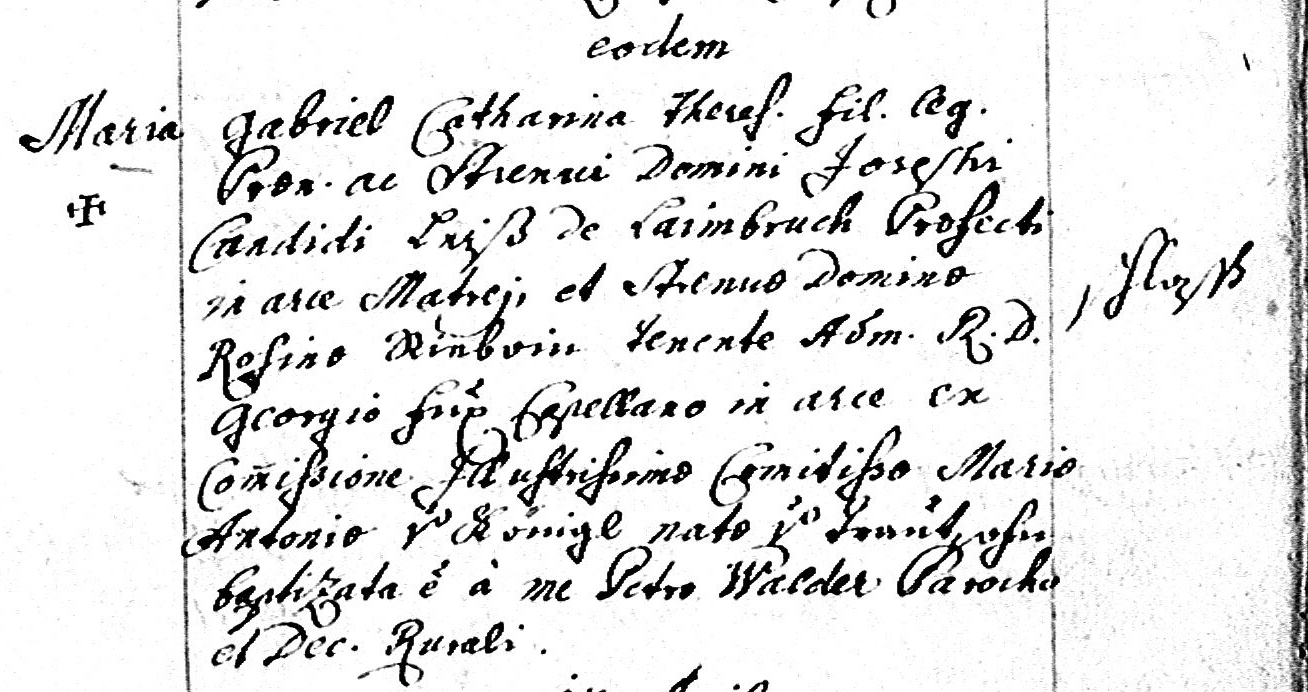 eodem
Maria Gabriel Catharina Theres. fil. leg.
Præn. ac Strenui Domini Josephi
Candidi de Laimbruch Præfecti
in arce Matreji et Strenuæ Dominæ
Schloss
Rosinæ tenente Adm. R. D.
Georgio Capellano in arce ex
Com̄issione Illustrissimæ Comitissæ Mariæ
Antoniæ v. Königl natæ v. Trautsohn
baptizata ē à me Petro Walder Parocho
et Dec. Rurali.